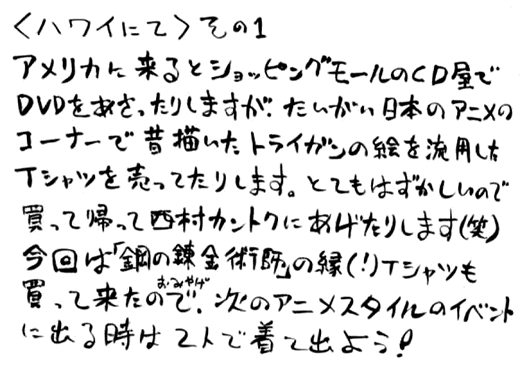 〈ハワイにて〉その1
アメリカに来るとショッピングモールのCD屋で
DVDをあさったりしますが、たいがい日本のアニメの
コーナーで昔描いたトライガンの絵を流用した
Tシャツを売ってたりします。とてもはずかしいので
買って帰って西村カントクにあげたりします(笑)
今回は「鋼の錬金術師」の縁(!)Tシャツも
おみやげ
買って来たので、次のアニメスタイルのイベント
に出る時は2人で着て出よう!